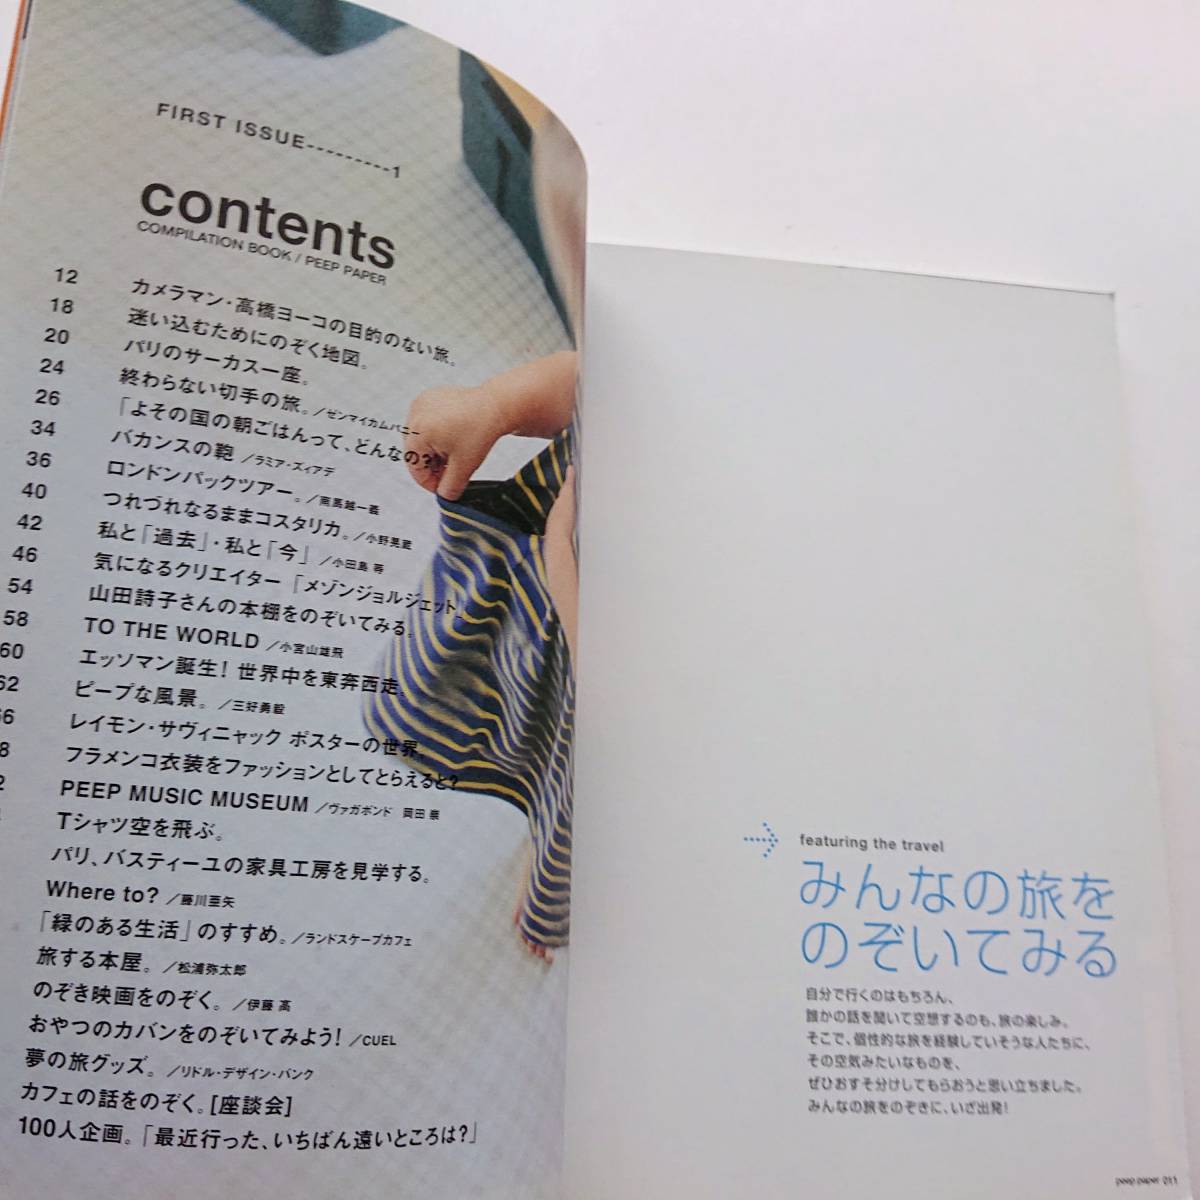 FIRST ISSUE---------1
contents
COMPILATION BOOK / PEEP PAPER
12 カメラマン・高橋ヨーコの目的のない旅。
18 迷い込むためにのぞく地図。
20 パリのサーカス一座。
24 終わらない切手の旅。／ゼンマイカムパニー
26 「よその国の朝ごはんって、どんなの?」
34 バカンスの鞄 ／ラミア・ズィアデ
36 ロンドンパックツアー。／南馬越一義
40 つれづれなるままコスタリカ。／小野晃蔵
42 私と「過去」・私と「今」 ／小田島 等
46 気になるクリエイター「メゾンジョルジェット」
54 山田詩子さんの本棚をのぞいてみる。
58 TO THE WORLD ／小宮山雄飛
60 エッソマン誕生! 世界中を東奔西走。
62 ピープな風景。／三好勇毅
66 レイモン・サヴィニャック ポスターの世界。
8 フラメンコ衣装をファッションとしてとらえると?
2 PEEP MUSIC MUSEUM ／ヴァガボンド 岡田 崇
Tシャツ空を飛ぶ。
パリ、バスティーユの家具工房を見学する。
Where to? ／藤川亜矢
「緑のある生活」のすすめ。／ランドスケープカフェ
旅する本屋。／松浦弥太郎
のぞき映画をのぞく。／伊藤 高
おやつのカバンをのぞいてみよう! ／CUEL
夢の旅グッズ。／リドル・デザイン・バンク
カフェの話をのぞく。[座談会]
100人企画。「最近行った、いちばん遠いところは?」
featuring the travel
みんなの旅を
のぞいてみる
自分で行くのはもちろん、
誰かの話を聞いて空想するのも、旅の楽しみ。
そこで、個性的な旅を経験していそうな人たちに、
その空気みたいなものを、
ぜひおすそ分けしてもらおうと思い立ちました。
みんなの旅をのぞきに、いざ出発!
peep paper 011